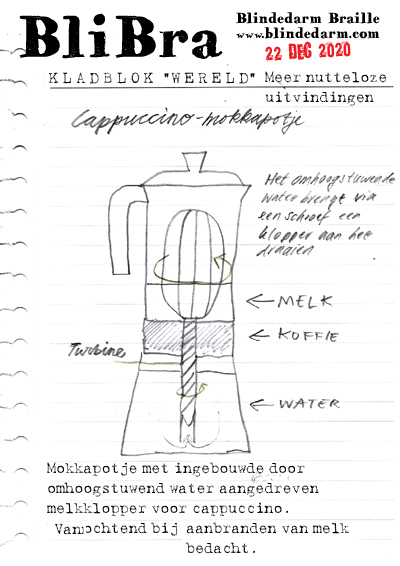 BliBra
Blindedarm Braille
www.blindedarm.com
22 DEC 2020
KLADBLOK "WERELD" Meer nutteloze
uitvindingen
Cappuccino-mokkapotje
Het omhoogstuwende
water brengt via
een schroef een
klopper aan het
draaien
← MELK
← KOFFIE
Turbine
← WATER
Mokkapotje met ingebouwde door
omhoogstuwend water aangedreven
melkklopper voor cappuccino.
Vanochtend bij aanbranden van melk
bedacht.